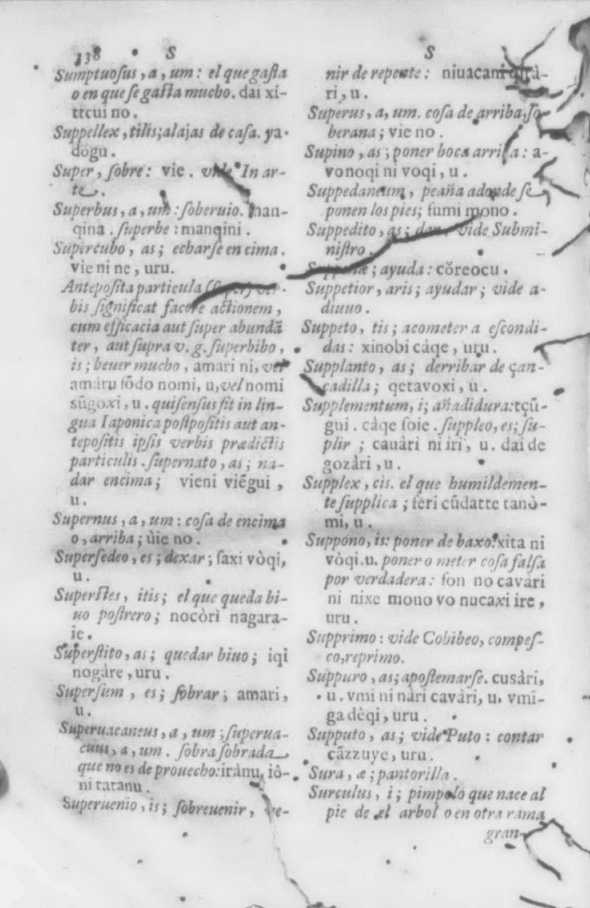 138 S
Sumptuosus, a, um: el que gasta
o en que se gasta mucho. dai xi-
ttcui no.
Suppellex, tilis; alajas de casa. ya-
dògu.
Super, sobre: vie. vide In ar-
te.
Superbus, a, um: soberuio. man-
qina. superbe: manqini.
Supircubo, as; echarse en cima.
vie ni ne, uru.
Anteposita particula (super) ver-
bis significat facere actionem,
cum efficacia aut super abundã
ter, aut supra v. g. superbibo,
is; beuer mucho, amari ni, vel
amàru fõdo nomi, u, vel nomi
sũgoxi, u. qui sensus fit in lin-
gua Iaponica postpositis aut an-
tepositis ipsis verbis prædictis
particulis. supernato, as; na-
dar encima; vieni viẽgui,
u.
Supernus, a, um: cosa de encima
o, arriba; ùie no.
Supersedeo, es; dexar; saxi vòqi,
u.
Superstes, itis; el que queda bi-
uo postrero; nocòri nagara-
ie.
Superstito, as; quedar biuo; iqi
nogàre, uru.
Supersum, es; sobrar; amari,
u.
Superuacaneus, a, um; superua-
cuus, a, um. sobra sobrada
que no es de prouecho: irànu, iô-
ni tatanu.
Superuenio, is; sobreuenir, ve-
S
nir de repente: niuacani
ri, u.
Superus, a, um. cosa de arriba, so-
berana; vie no.
Supino, as; poner boca arriba: a-
vonoqi ni voqi, u.
Suppedaneum, peaña adonde se
ponen los pies; fumi mono.
Suppedito, as; dar, vide Submi-
nistro.
ayuda: cŏreocu.
Suppetior, aris; ayudar; vide a-
diuuo.
Suppeto, tis; acometer a escondi-
das: xinobi càqe, uru.
Supplanto, as; derribar de çan-
cadilla; qetavoxi, u.
Supplementum, i; añadidura: tçũ-
gui. càqe soie. suppleo, es; su-
plir; cauàri ni iri, u. dai de
gozàri, u.
Supplex, cis. el que humildemen-
te supplica; feri cũdatte tanò-
mi, u.
Suppono, is: poner de baxo: xita ni
vòqi. u. poner o meter cosa falsa
por verdadera: son no cavàri
ni nixe mono vo nucaxi ire,
uru.
Supprimo: vide Cohibeo, compes-
co, reprimo.
Suppuro, as; apostemarse. cusàri,
u. vmi ni nàri cavàri, u. vmi-
ga dèqi, uru.
Supputo, as; vide Puto: contar
cãzzuye, uru.
Sura, æ; pantorilla.
Surculus, i; pimpolo que nace al
pie de el arbol o en otra rama
gran-